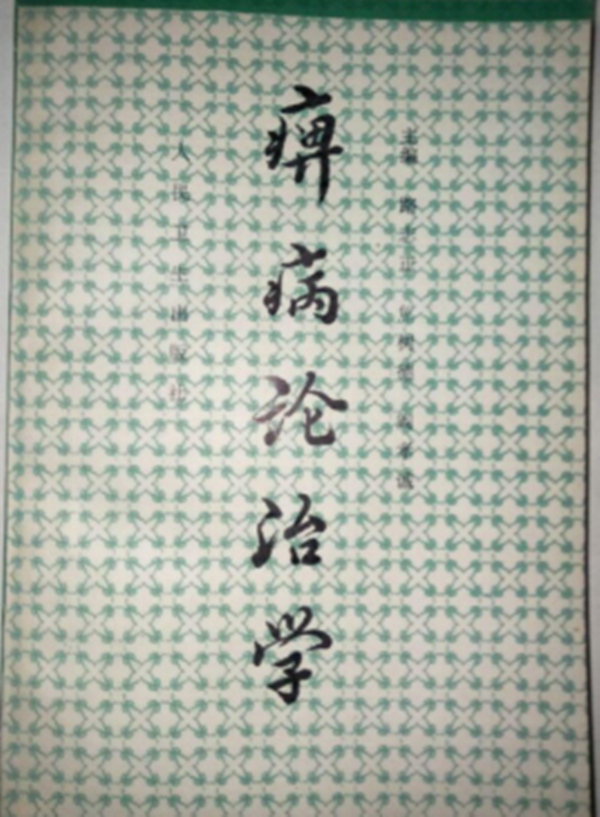 主编 路志正 焦树德
痹病论治学
人民卫生出版社